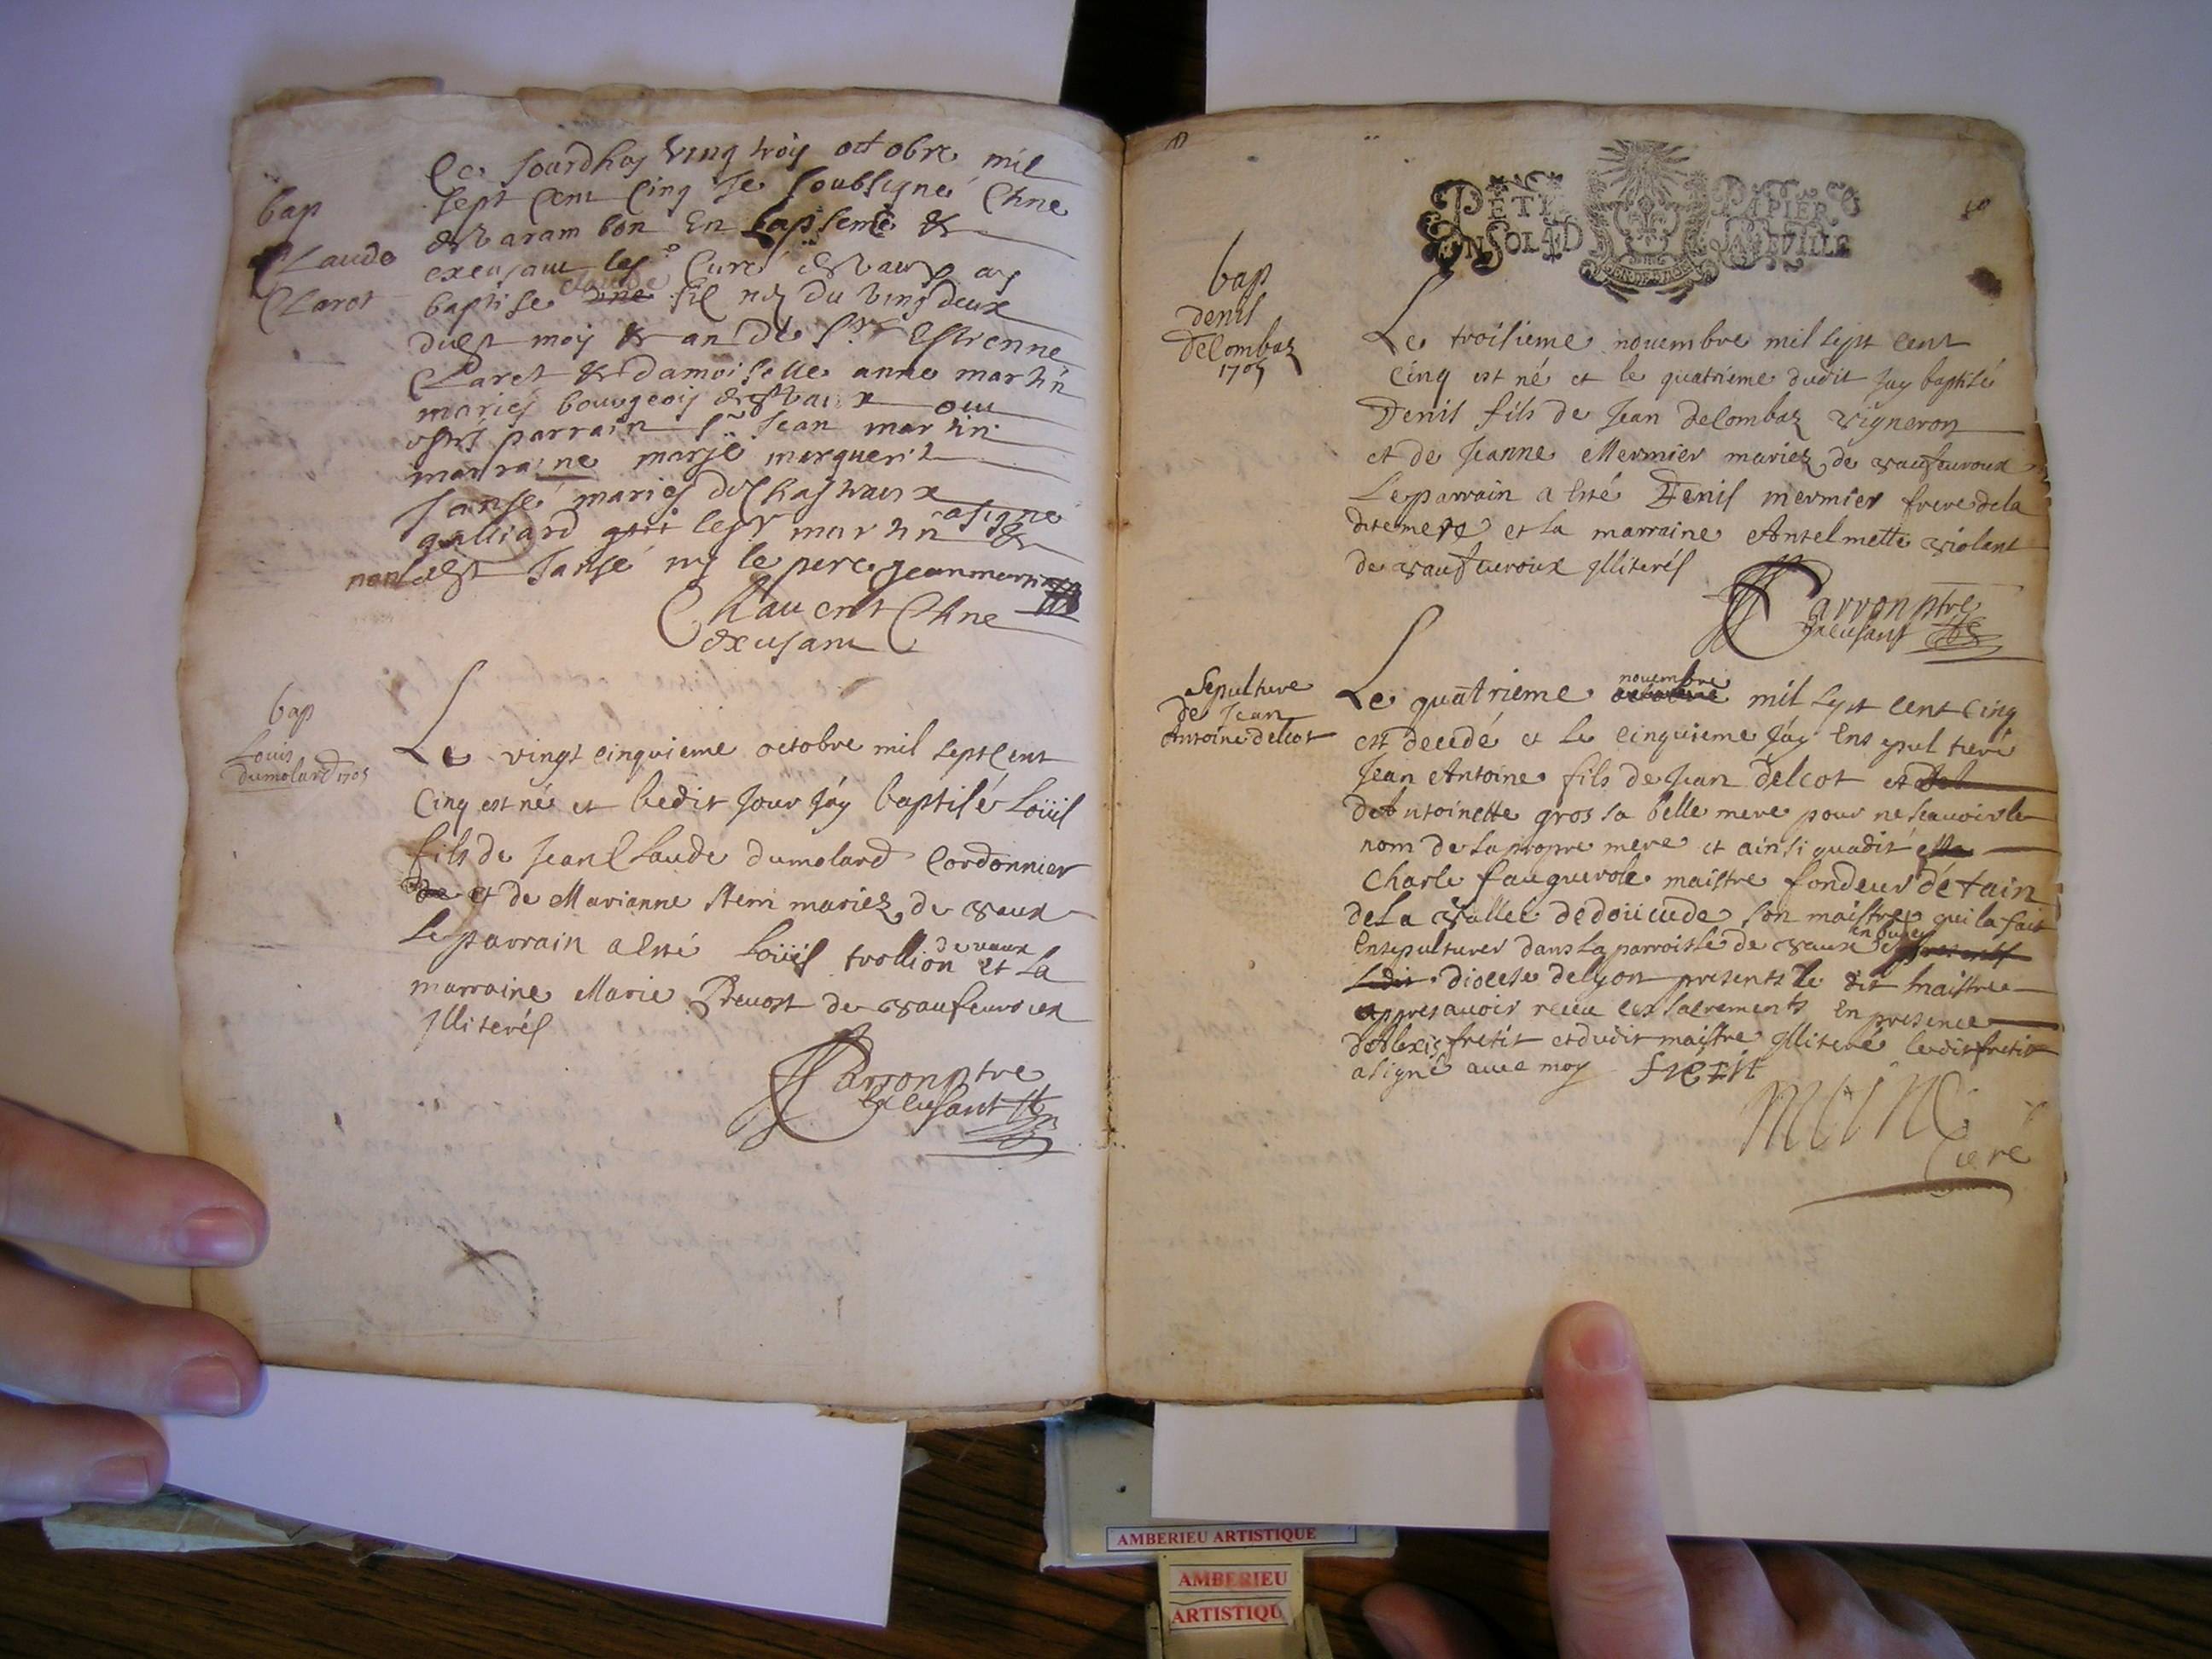 bap
Claude
Claret
Ce Jourdhuy Ving troy octobre mil
sept Cent Cinq Je soubsigné Chne
de varambon En baptseme &
exersant les Cure de vaux ay
Claude
baptise fil nez du ving deux
dudit moy & an de Sr Estienne
Claret & damoiselle anne martin
mariez bourgeois de vaux ont
estés parrain Sr Jean martin
marraine marje marguerit
Janse maries de Chasteaux
galliard le Sr martin a signe &
non Janse ny le pere Jean martin
Chauent Chne
exersant
bap
Louis
dumolard 1705
Le vingt cinquieme octobre mil sept cent
cinq est né et ledit Jour Jáy baptisé Loüis
fils de Jean Claude dumolard Cordonnier
et de Marianne Nem mariez de vaux
de vaux
Le parrain a esté Loüis trollion et La
marraine Marie Prevost de vaufevroux
Jlliterés
Carron ptre
Exersant
PETIT PAPIER
EN SOL 4 D LA FEVILLE
bap
denis
delombaz
1705
Le troisieme novembre mil sept cent
cinq est né et le quatrieme dudit Jay baptisé
Denis fils de Jean delombaz vigneron
et de Jeanne Mermier mariez de vaufevroux
Le parrain a esté Denis mermier frere de la
dite mere et La marraine Antelmette violant
de vaufevroux Jlliterés
Carron ptre
Exersant
Sepulture
de Jean
Antoine delcot
novembre
Le quatrieme mil sept cent cinq
est decedé et Le cinquieme Jáy Ensepulturé
Jean Antoine fils de Jean delcot et
d'Antoinette gros sa belle mere pour ne scauoir le
nom de sa propre mere et ainsi qua dit
Charle fauquerole maistre fondeur détain
de La vallée son maistre qui la fait
en bugey
Ensepulturer dans La parroisse de vaux
diocese de Lyon presents le dit maistre
appres auoir receu les sacrements En presence
d'Alexis fretit et dudit maistre Jlliteré ledit fretit
a signé auec moy fretit
Curé
AMBERIEU ARTISTIQUE
AMBERIEU
ARTISTIQU